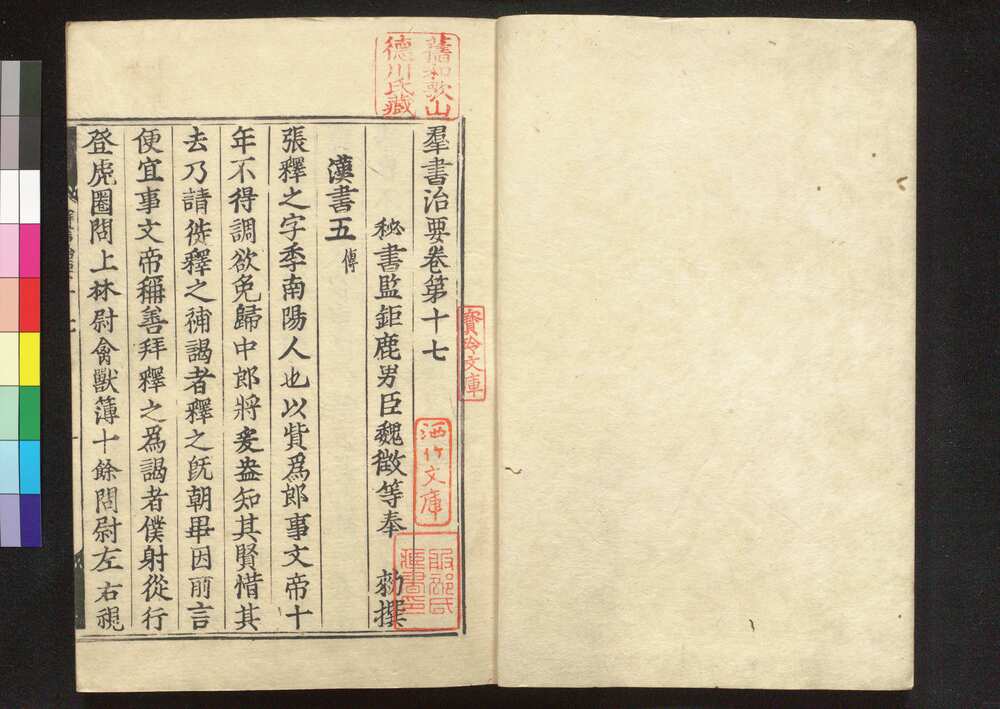 羣書治要卷第十七
秘書監鉅鹿男臣魏徵等奉 勑撰
漢書五 傳
張釋之字季南陽人也以貲爲郎事文帝十
年不得調欲免歸中郎將爰盎知其賢惜其
去乃請徙釋之補謁者釋之旣朝畢因前言
便宜事文帝稱善拜釋之爲謁者僕射從行
登虎圈問上林尉禽獸簿十餘問尉左右視
舊和歌山
德川氏藏
寶玲文庫
洒竹文庫
服部氏
藏書印